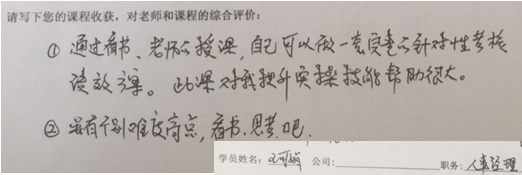 请写下您的课程收获，对老师和课程的综合评价：
① 通过看书、老师的授课，自己可以做一套完整的针对性考核
绩效方案。此课对我提升实操技能帮助很大。
② 虽有个别难度高点，看书、思考吧.
学员姓名： 公司： 职务：人事经理